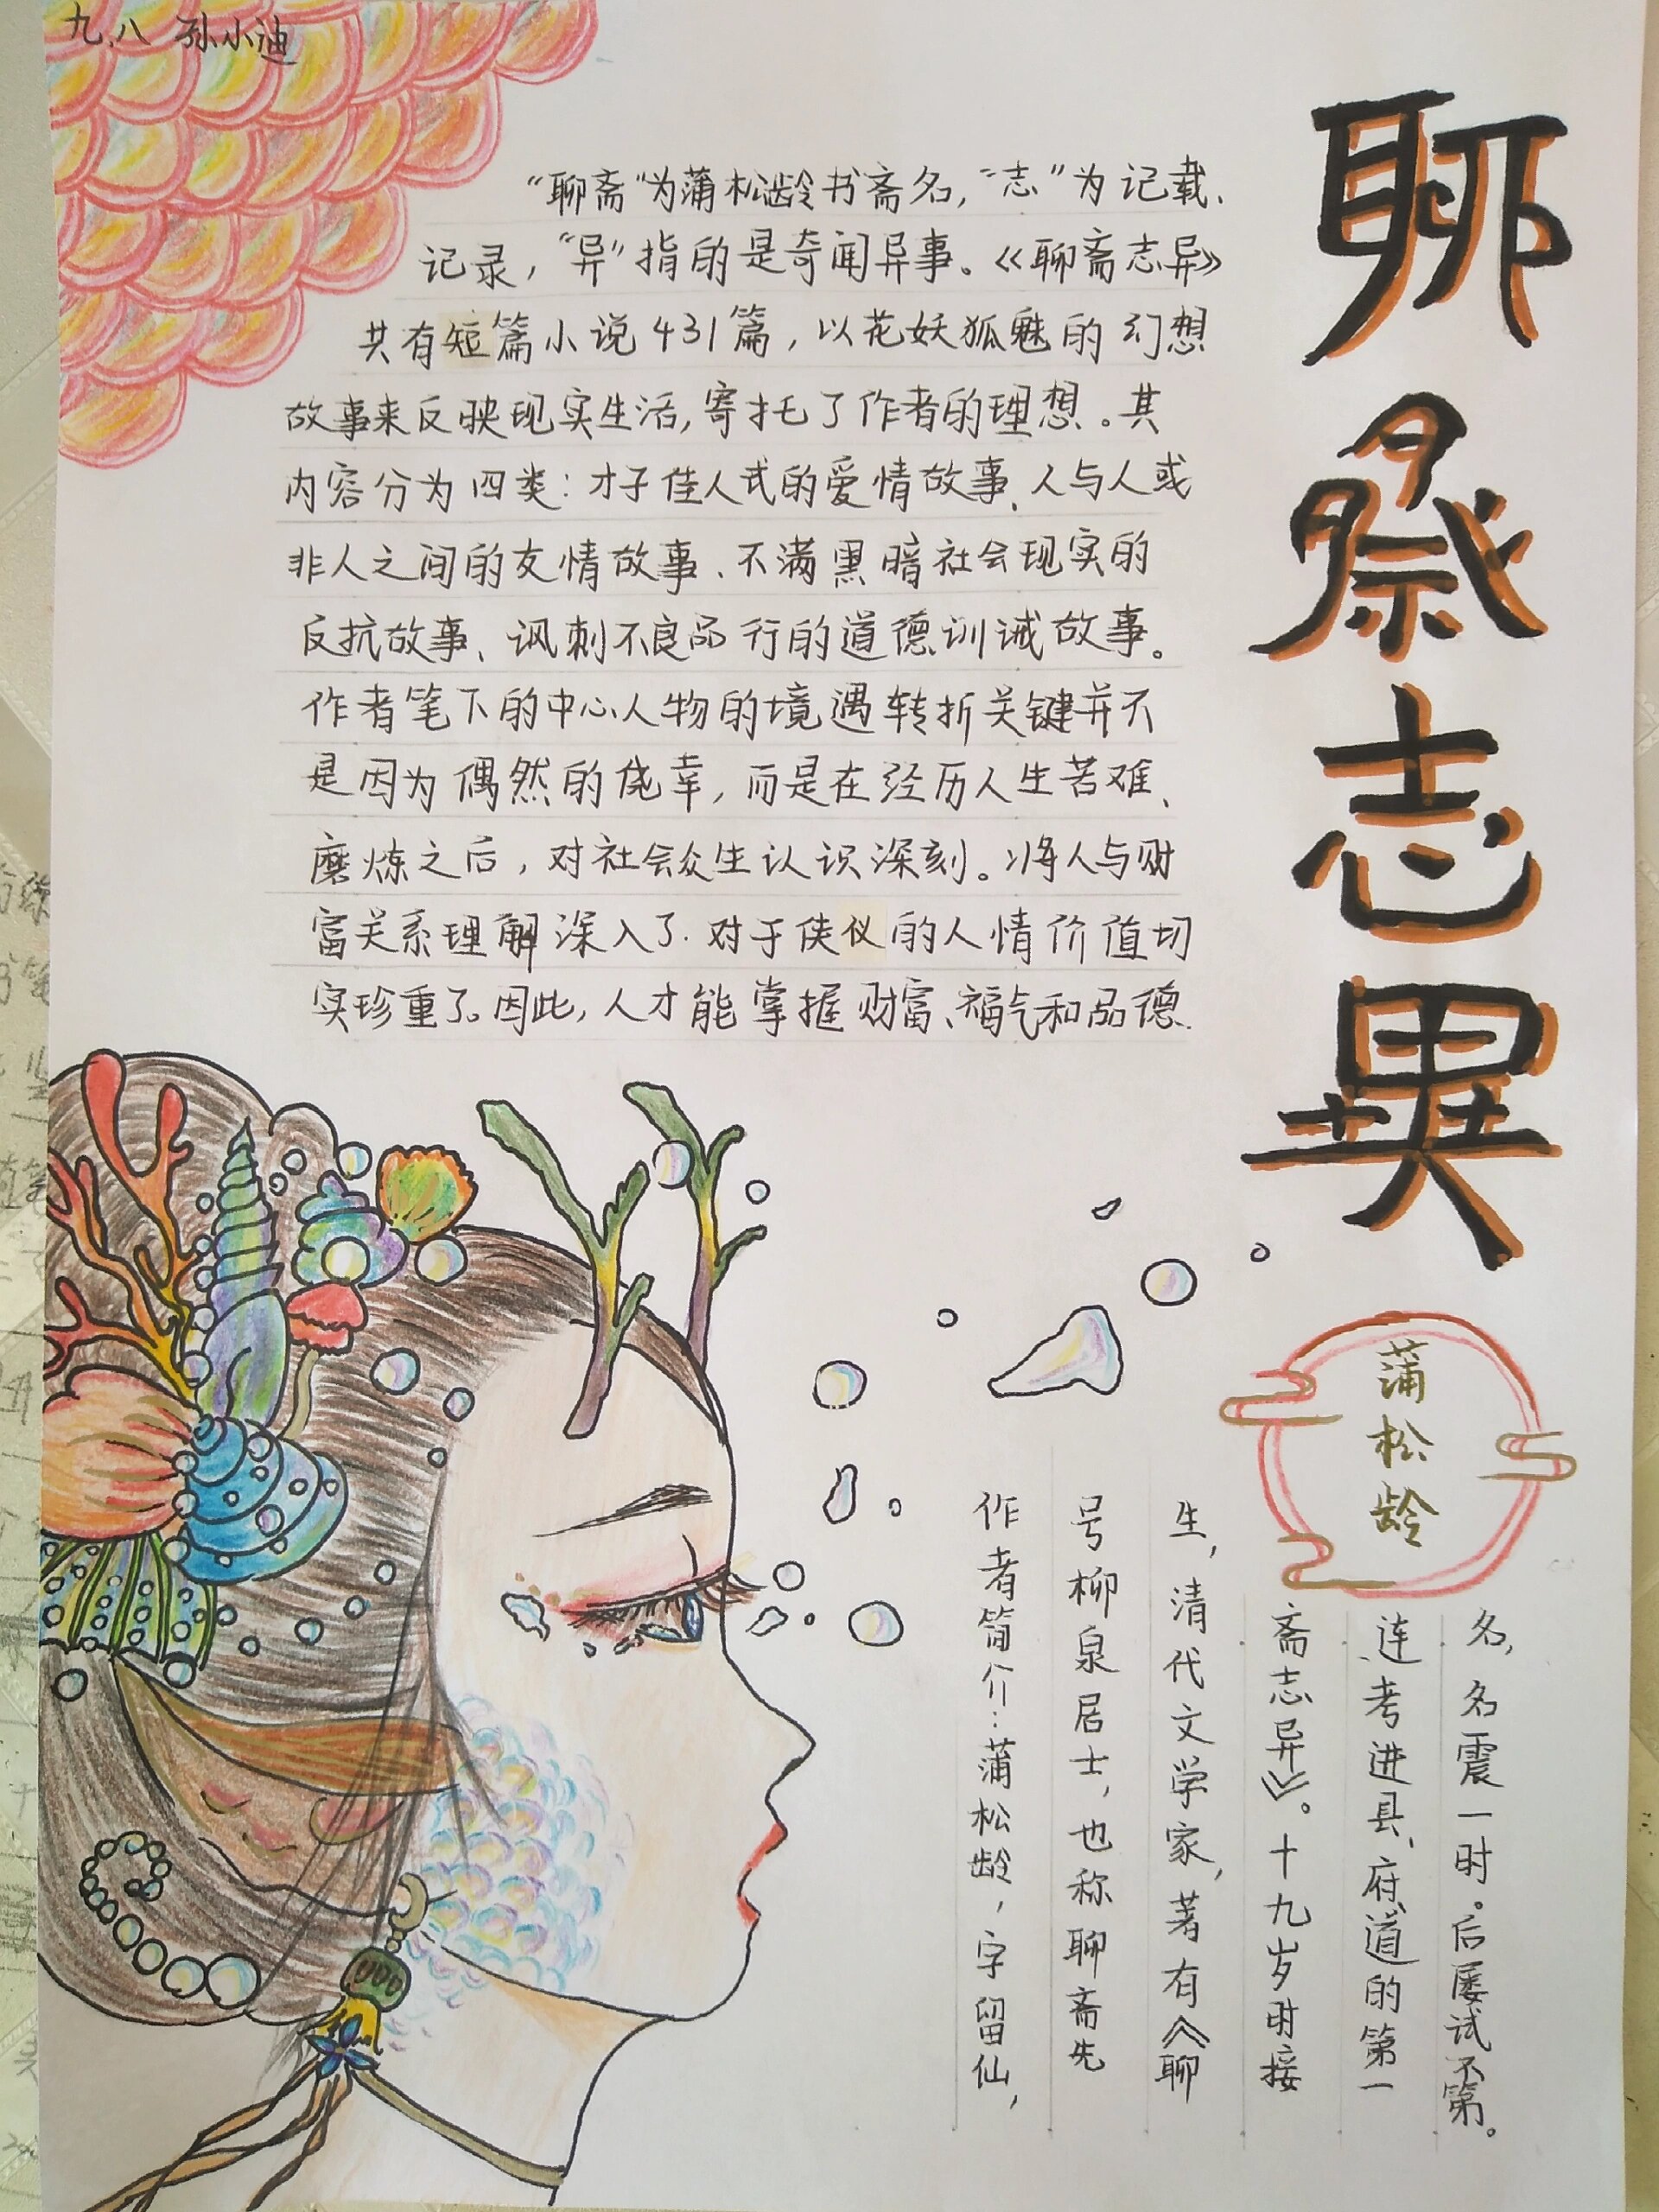 九.八 孙小迪
聊斋志異
“聊斋”为蒲松龄书斋名，“志”为记载、
记录，“异”指的是奇闻异事。《聊斋志异》
共有短篇小说431篇，以花妖狐魅的幻想
故事来反映现实生活，寄托了作者的理想。其
内容分为四类：才子佳人式的爱情故事、人与人或
非人之间的友情故事、不满黑暗社会现实的
反抗故事、讽刺不良品行的道德训诫故事。
作者笔下的中心人物的境遇转折关键并不
是因为偶然的侥幸，而是在经历人生苦难、
磨炼之后，对社会众生认识深刻。将人与财
富关系理解深入了.对于侠仪的人情价值切
实珍重了。因此，人才能掌握财富、福气和品德.
蒲松龄
作者简介：蒲松龄，字留仙，
号柳泉居士，也称聊斋先
生，清代文学家，著有《聊
斋志异》。十九岁时接
连考进县、府、道的第一
名，名震一时。后屡试不第。